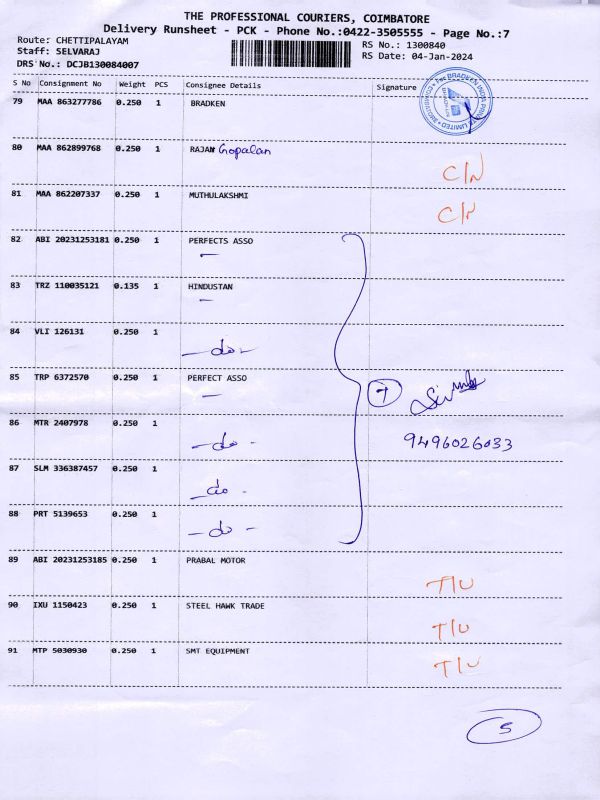 THE PROFESSIONAL COURIERS, COIMBATORE
Delivery Runsheet - PCK - Phone No.:0422-3505555 - Page No.:7
Route: CHETTIPALAYAM
Staff: SELVARAJ
DRS No.: DCJB130084007
RS No.: 1300840
RS Date: 04-Jan-2024
S No Consignment No Weight PCS Consignee Details Signature
79 MAA 863277786 0.250 1 BRADKEN
80 MAA 862899768 0.250 1 RAJAN Gopalan C/N
81 MAA 862207337 0.250 1 MUTHULAKSHMI C/N
82 ABI 20231253181 0.250 1 PERFECTS ASSO
83 TRZ 110035121 0.135 1 HINDUSTAN
84 VLI 126131 0.250 1 -do-
85 TRP 6372570 0.250 1 PERFECT ASSO 7
86 MTR 2407978 0.250 1 -do- 9496026033
87 SLM 336387457 0.250 1 -do-
88 PRT 5139653 0.250 1 -do-
89 ABI 20231253185 0.250 1 PRABAL MOTOR T/U
90 IXU 1150423 0.250 1 STEEL HAWK TRADE T/U
91 MTP 5030930 0.250 1 SMT EQUIPMENT T/U
5